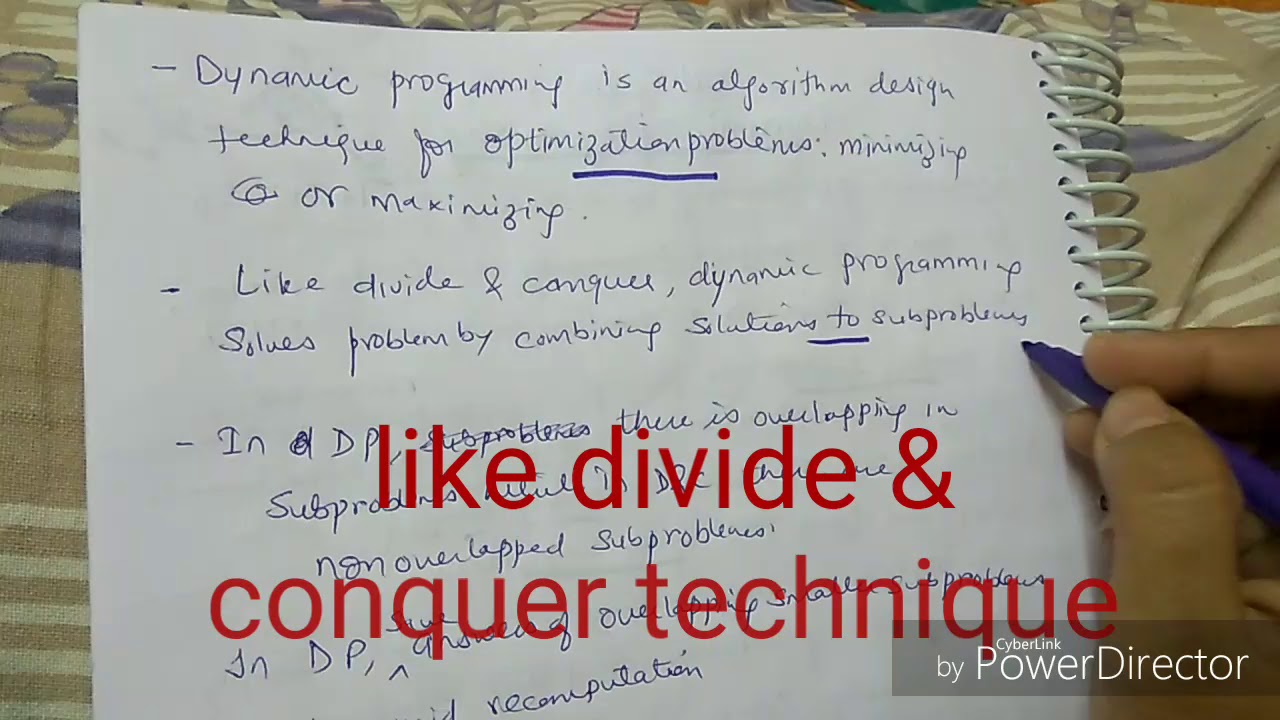 - Dynamic programming is an algorithm design
technique for optimization problems: minimizing
or maximizing.
- Like divide & conquer, dynamic programming
Solves problem by combining solutions to subproblems
- In DP, subproblems there is overlapping in
Subproblems while in D&C there are
non overlapped subproblems.
like divide &
conquer technique
In DP, save answer of overlapping smaller subproblems
recomputation
CyberLink
by PowerDirector